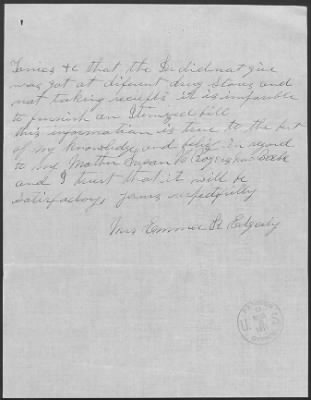 Tonics &c that the Dr did not give
was got at diferent drug Stores and
not taking receipts it is imposible
to furnish an Itemized bill
this information is true to the bst
of my knowledge and belief in regard
to the Mother Susan
and I trust that it will be
satisfactory yours respectfully
Mrs Emma